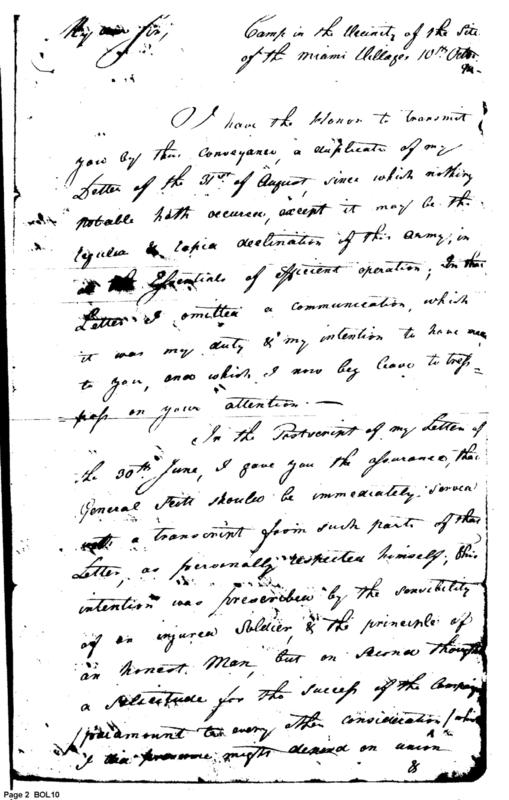 My dear Sir, Camp in the Vicinity of the Site
of the Miami Villages 10th Octr
94—
I have the Honor to transmit
you by this conveyance, a duplicate of my
Letter of the 31st of August, since which nothing
notable hath occured, except it may be the
regular & rapid declination of this Army, in
the Essentials of efficient operation; In that
Letter I omitted a communication, which
it was my duty & my intention to have made
to you, and which I now beg leave to tress-
pass on your attention.—
In the Postscript of my Letter of
the 30th June, I gave you the assurance, that
General Scott should be immediately served
with a transcript from such parts of that
Letter, as personally respected himself; this
intention was prescribed by the sensibility
of an injured Soldier, & the principle of
an honest Man, but on second thought
a solicitude for the success of the Campaign
/paramount to every other consideration/ which
I did presume might depend on union
&
Page 2 BOL10